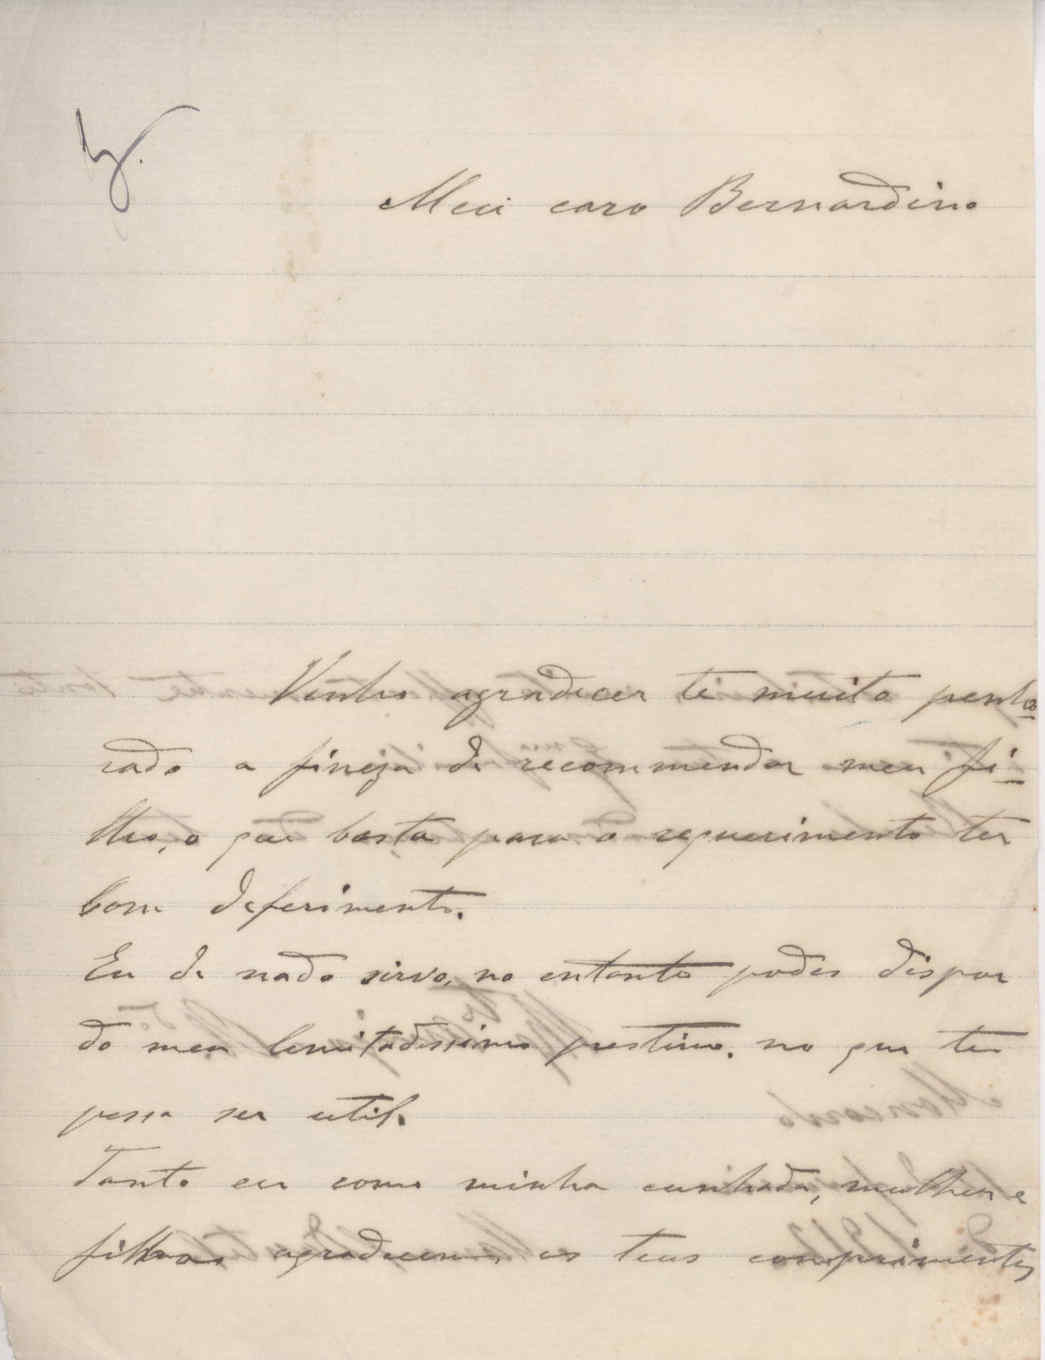 Meu caro Bernardino
Venho agradecer te muito penho
rado a fineza de recommendar meu fi-
lho, o que basta para o requerimento ter
bom deferimento.
Eu de nada sirvo, no entanto podes dispor
do meu lemitadissimo prestimo. no que te
possa ser util.
Tanto eu como minha cunhada, mulher e
filhas agradecem os teus comprimentos